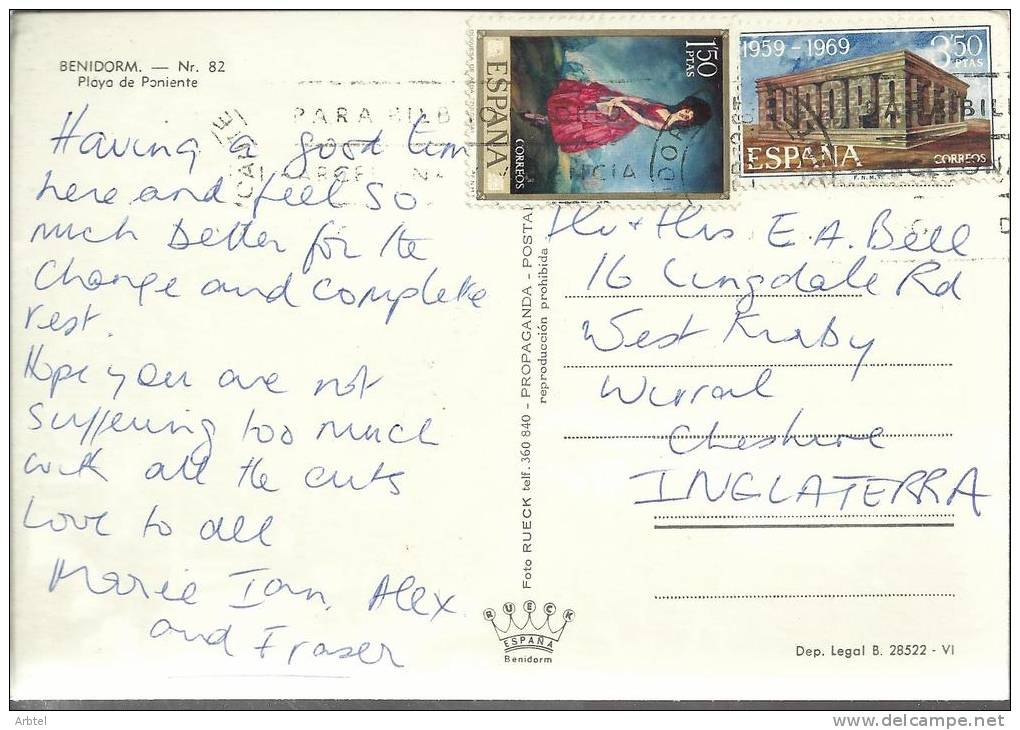 BENIDORM. — Nr. 82
Playa de Poniente
Having a good time
here and feel so
much better for the
change and complete
rest.
Hope you are not
suffering too much
with all the cuts
Love to all
Marie Ian, Alex
and Fraser
1'50 PTAS
ESPAÑA
CORREOS
1959 - 1969
3'50 PTAS
ESPAÑA
CORREOS
F.N.M.T.
PARA BILB
Mr + Mrs E.A. Bell
16 Lingdale Rd
West Kirby
Wirral
Cheshire
INGLATERRA
Foto RUECK telf. 360 840 - PROPAGANDA - POSTAL
reproducción prohibida
RUECK
ESPAÑA
Benidorm
Dep. Legal B. 28522 - VI
Arbtel
www.delcampe.net